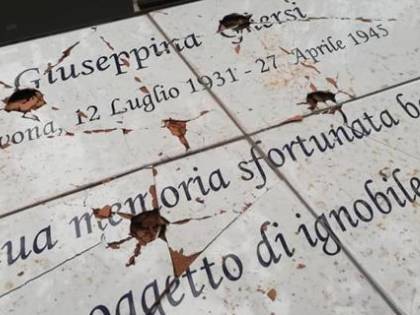 Giuseppina Ghersi
vona, 12 Luglio 1931 - 27 Aprile 1945
ua memoria sfortunata b
oggetto di ignobile